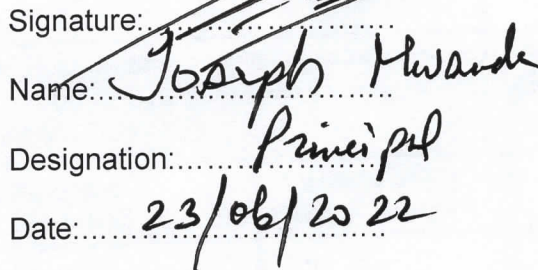 Signature:..............................
Name:..Joseph Mwanda
Designation:......Principal
Date:......23/06/2022